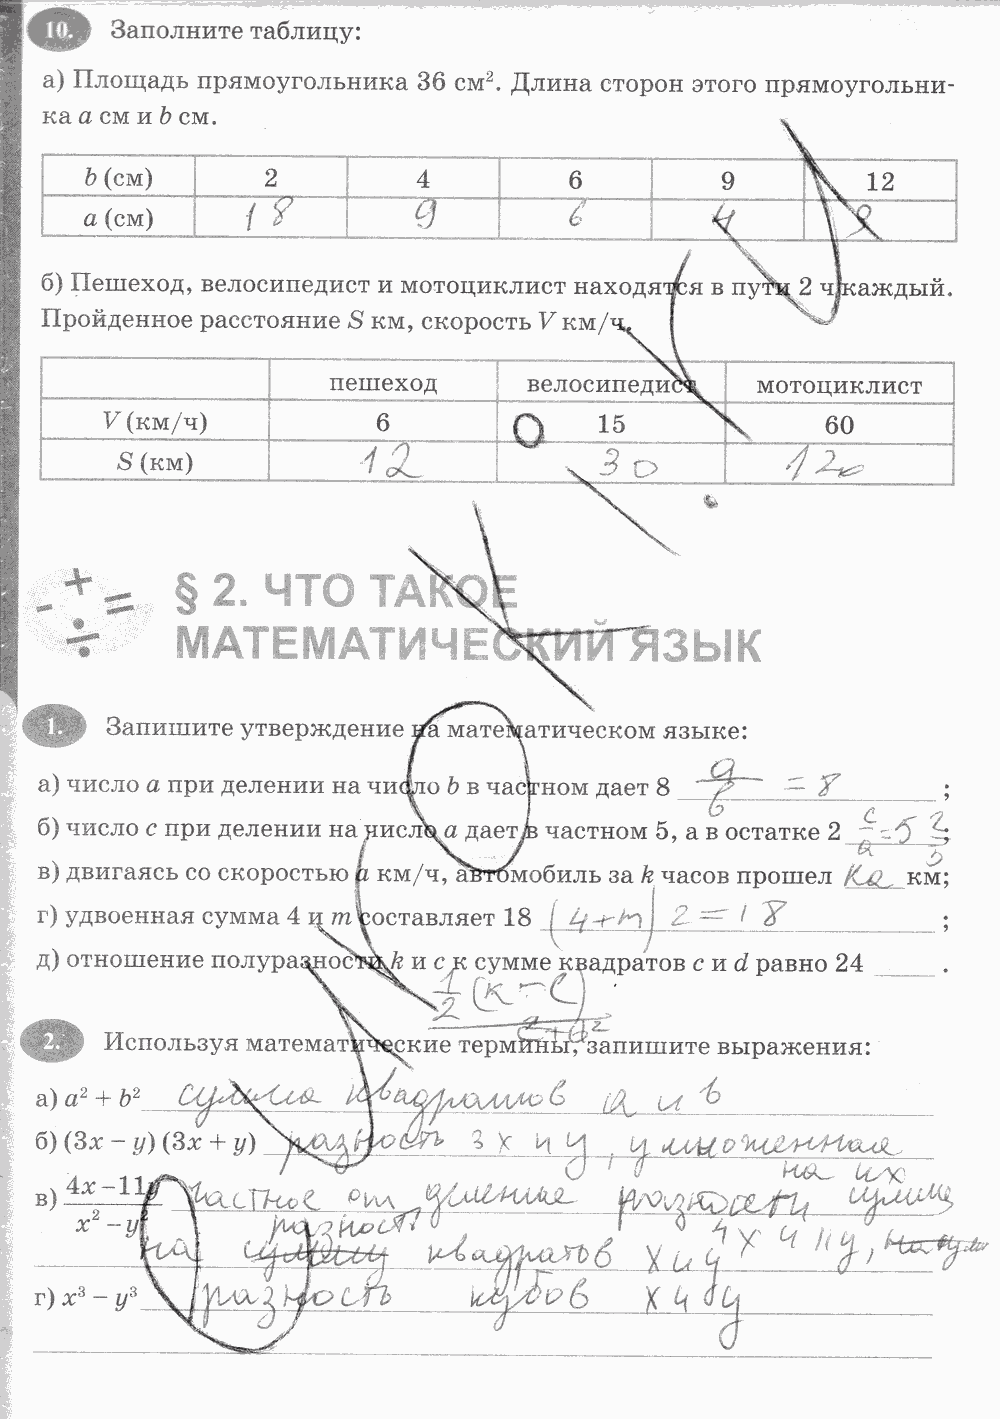 10. Заполните таблицу:
а) Площадь прямоугольника 36 см². Длина сторон этого прямоугольни-
ка a см и b см.
b (см) 2 4 6 9 12
a (см) 18 9 6 4 3
б) Пешеход, велосипедист и мотоциклист находятся в пути 2 ч каждый.
Пройденное расстояние S км, скорость V км/ч.
пешеход велосипедист мотоциклист
V (км/ч) 6 15 60
S (км) 12 30 120
§ 2. ЧТО ТАКОЕ
МАТЕМАТИЧЕСКИЙ ЯЗЫК
1. Запишите утверждение на математическом языке:
а) число a при делении на число b в частном дает 8 a/b = 8 ;
б) число c при делении на число a дает в частном 5, а в остатке 2 c/a = 5 2/5 ;
в) двигаясь со скоростью a км/ч, автомобиль за k часов прошел ka км;
г) удвоенная сумма 4 и m составляет 18 (4+m) 2 = 18 ;
д) отношение полуразности k и c к сумме квадратов c и d равно 24 .
1/2 (k − c)
c² + d²
2. Используя математические термины, запишите выражения:
а) a² + b² сумма квадратов a и b
б) (3x − y) (3x + y) разность 3x и y, умноженная
на их
в) 4x −11y / x² − y² частное от деление разности сумме
разность 4x и 11y,
на сумму квадратов x и y
г) x³ − y³ разность кубов x и y